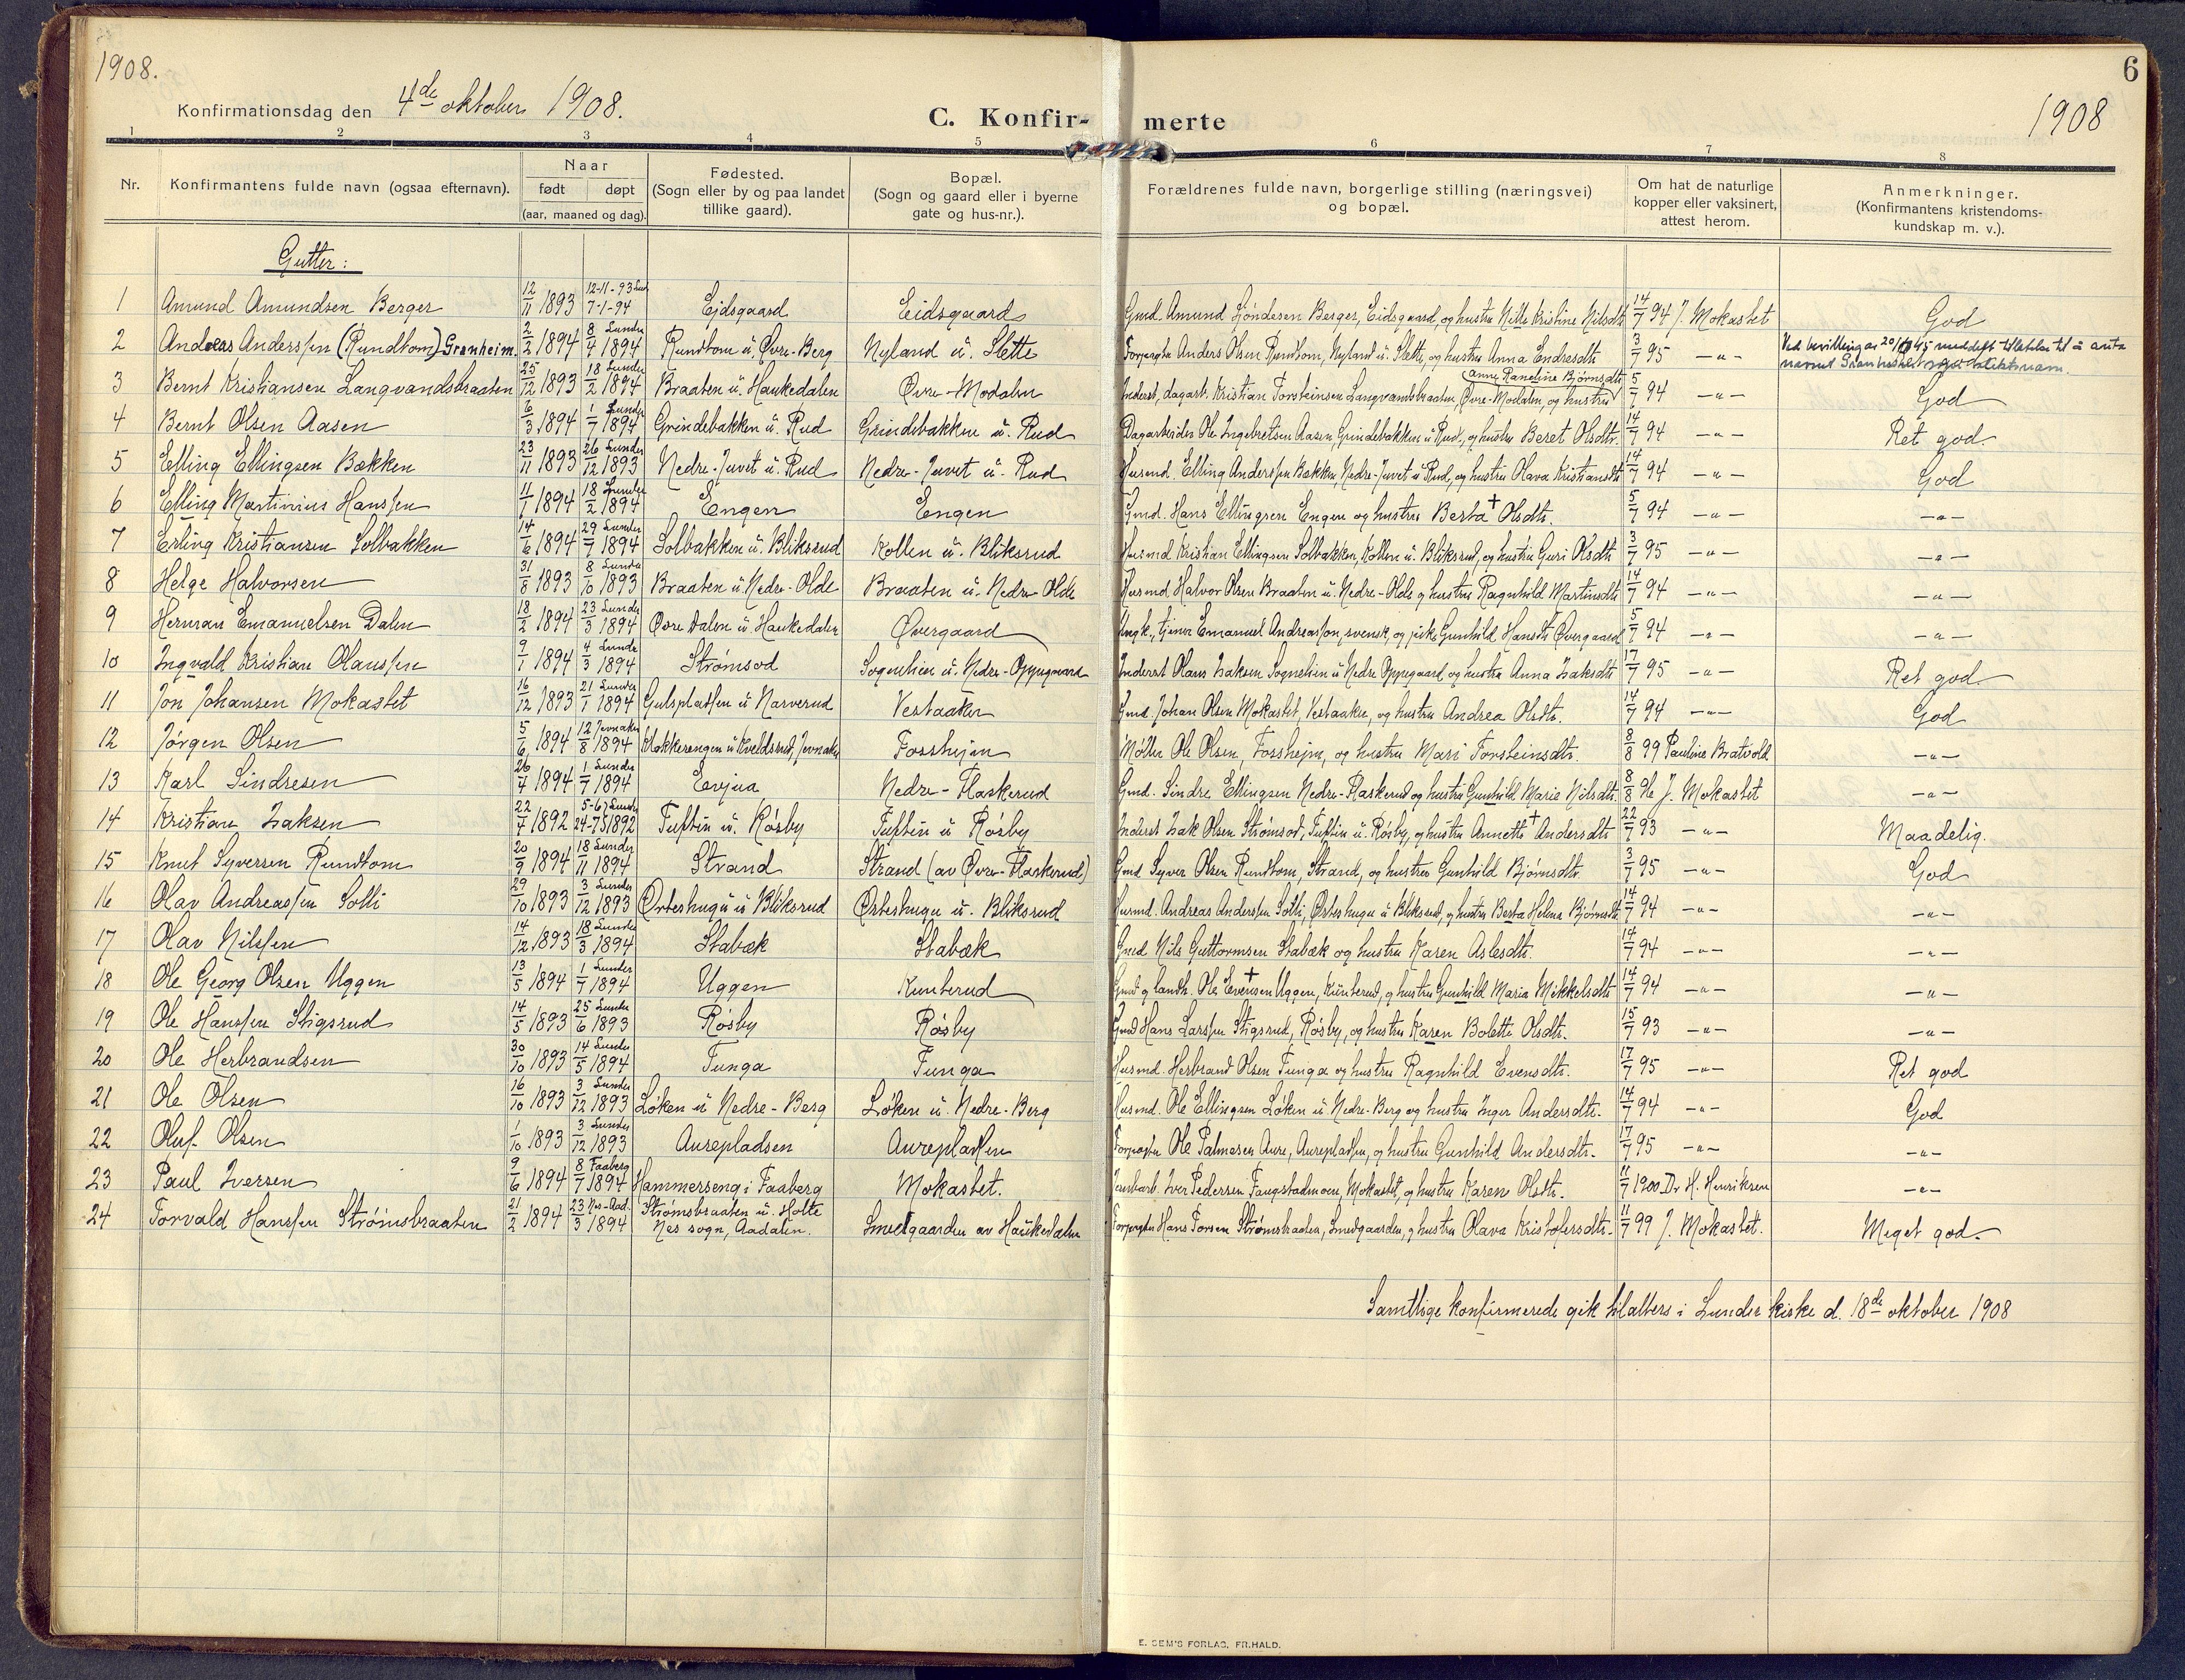 1908.
6
1908
Konfirmationsdag den 4de oktober 1908.
C. Konfir- merte
1 2 3 4 5 6 7 8
Nr.
Konfirmantens fulde navn (ogsaa efternavn).
Naar
født døpt
(aar, maaned og dag).
Fødested.
(Sogn eller by og paa landet
tillike gaard).
Bopæl.
(Sogn og gaard eller i byerne
gate og hus-nr.).
Forældrenes fulde navn, borgerlige stilling (næringsvei)
og bopæl.
Om hat de naturlige
kopper eller vaksinert,
attest herom.
Anmerkninger.
(Konfirmantens kristendoms-
kundskap m. v.).
Gutter:
1 Amund Amundsen Berger 12/11 1893 12-11-93 7-1-94 Ejdsgaard Eidsgaard Gmd. Amund Berger, Eidsgaard, og hustru Kristine Nilsdtr 14/7 94 J. Mokastet God
2 Andreas Anderssen (Rundtom) Granheim. 2/2 1894 8/4 Lunder 1894 Rundtom u. Øvre-Berg Nyland u. Slette Forpagter Anders Olsen Rundtom, Nyland u. Slette, og hustru Anna Endresdtr 3/7 95 -"- Ved bevilling av 20/10 45 meddelt tillatelse til å anta navnet Granheim som slektsnavn.
3 Bernt Kristiansen Langvandsbraaten 25/12 1893 18/2 Lunder 1894 Braaten u. Haukedalen Øvre-Modalen Inderst, dagarb. Kristian Torsteinsen Langvandsbraaten, Øvre-Modalen, og hustru Anne Raneline Bjørnsdtr 5/7 94 -"- God
4 Bernt Olsen Aasen 6/3 1894 1/7 Lunder 1894 Grindebakken u. Rud Grindebakken u. Rud Dagarbeider Ole Ingebretsen Aasen Grindebakken u. Rud, og hustru Beret Olsdtr. 14/7 94 -"- Ret god.
5 Elling Ellingsen Bækken 23/11 1893 26/12 Lunder 1893 Nedre-Juvet u. Rud Nedre-Juvet u. Rud Husmd. Elling Anderssen Bækken Nedre-Juvet u. Rud, og hustru Olava Kristiansdtr 14/7 94 -"- God
6 Elling Martinius Hanssen 11/1 1894 18/2 Lunder 1894 Engen Engen Gmd. Hans Ellingsen Engen og hustru Berta + Olsdtr. 5/7 94 -"- -"-
7 Erling Kristiansen Solbakken 14/6 1894 29/7 Lunder 1894 Solbakken u. Bliksrud Kollen u. Bliksrud Husmd Kristian Ellingsen Solbakken, Kollen u. Bliksrud, og hustru Guri Olsdtr 3/7 95 -"- -"-
8 Helge Halvorsen 31/8 1893 8/10 Lunder 1893 Braaten u. Nedre-Olde Braaten u. Nedre Olde Husmd. Halvor Olsen Braaten u. Nedre-Olde og hustru Ragnhild Martinsdtr 14/7 94 -"- -"-
9 Herman Emanuelsen Dalen 18/2 1894 23/3 Lunder 1894 Øvre Dalen u. Haukedalen Øvergaard Ungk., tjener Emanuel Andreasson, svensk, og pike Gunhild Hansdtr Øvergaard 5/7 94 -"- -"-
10 Ingvald Kristian Olaussen 9/1 1894 4/3 Lunder 1894 Strømsod Sognelien u. Nedre-Oppegaard Inderst Olaus Isaksen Sognelien u. Nedre Oppegaard, og hustru Anna Isaksdtr 17/7 95 -"- Ret god.
11 Jon Johansen Mokastet 16/12 1893 21/1 Lunder 1894 Gulsplassen u. Narverud Vestaaker Gmd. Johan Olsen Mokastet, Vestaaker, og hustru Andrea Olsdtr. 14/7 94 -"- God
12 Jørgen Olsen 5/6 1894 12/8 Jevnaker 1894 Klokkerengen u. Kveldsrud, Jevnaker Fosshejm Møller Ole Olsen, Fosshejm, og hustru Mari Torsteinsdtr. 8/8 99 Pauline Bratvold -"-
13 Karl Sindresen 26/4 1894 1/7 Lunder 1894 Evjua Nedre-Flaskerud Gmd. Sindre Ellingsen Nedre-Flaskerud og hustru Gunhild Marie Nilsdtr. 8/8 J. Mokastet -"-
14 Kristian Isaksen 22/4 1892 5-6 Lunder 24-7 1892 Tuftin u. Røsby Tuftin u. Røsby Inderst Isak Olsen Strømsod, Tuftin u. Røsby, og hustru Annette + Andersdtr 22/7 93 -"- Maadelig.
15 Knut Syversen Rundtom 20/9 1894 18/11 Lunder 1894 Strand Strand (av Øvre-Flaskerud) Gmd. Syver Olsen Rundtom, Strand, og hustru Gunhild Bjørnsdtr. 3/7 95 -"- God
16 Olav Andreassen Solli 29/10 1893 3/12 Lunder 1893 Ørteshugu u. Bliksrud Ørteshugu u. Bliksrud Husmd. Andreas Anderssen Solli, Ørteshugu u. Bliksrud, og hustru Berta Helene Bjørnsdtr. 14/7 94 -"- -"-
17 Olav Nilssen 14/12 1893 18/3 Lunder 1894 Stabæk Stabæk Gmd Nils Guttormsen Stabæk og hustru Karen Aslesdtr. 14/7 94 -"- -"-
18 Ole Georg Olsen Uggen 13/5 1894 1/7 Lunder 1894 Uggen Kunterud Gmd og landh. Ole Evensen + Uggen, Kunterud, og hustru Gunhild Maria Mikkelsdtr 14/7 94 -"- -"-
19 Ole Hanssen Stigsrud 14/5 1893 25/6 Lunder 1893 Røsby Røsby Gmd Hans Larssen Stigsrud, Røsby, og hustru Karen Bolette Olsdtr. 15/7 93 -"- -"-
20 Ole Herbrandsen 30/10 1893 14/5 Lunder 1894 Tunga Tunga Husmd. Herbrand Olsen Tunga og hustru Ragnhild Evensdtr. 17/7 95 -"- Ret god
21 Ole Olsen 16/10 1893 3/12 Lunder 1893 Løken u. Nedre-Berg Løken u. Nedre-Berg Husmd. Ole Ellingsen Løken u. Nedre-Berg og hustru Inger Andersdtr. 14/7 94 -"- God
22 Oluf Olsen 1/10 1893 3/12 Lunder 1893 Aurepladsen Aurepladsen Forpagter Ole Palmesen Aure, Aurepladsen, og hustru Gunhild Andersdtr. 17/7 95 -"- -"-
23 Paul Iversen 9/6 1894 8/7 Faaberg 1894 Hammerseng i Faaberg Mokastet. Iver Pedersen Faugstadmoen, Mokastet, og hustru Karen Olsdtr. 11/7 1900 Dr H. Henriksen -"-
24 Torvald Hanssen Strømsbraaten 21/2 1894 23/3 Nes-Aad. 1894 Strømsbraaten u. Holte Nes sogn, Aadalen. Smedgaarden av Haukedalen Forpagter Hans Torsen Strømsbraaten, Smedgaarden, og hustru Olava Kristofersdtr. 11/7 99 J. Mokastet. Meget god.
Samtlige konfirmerede gik tilalters i Lunder kirke d. 18de oktober 1908
E. SEM'S FORLAG, FR.HALD.